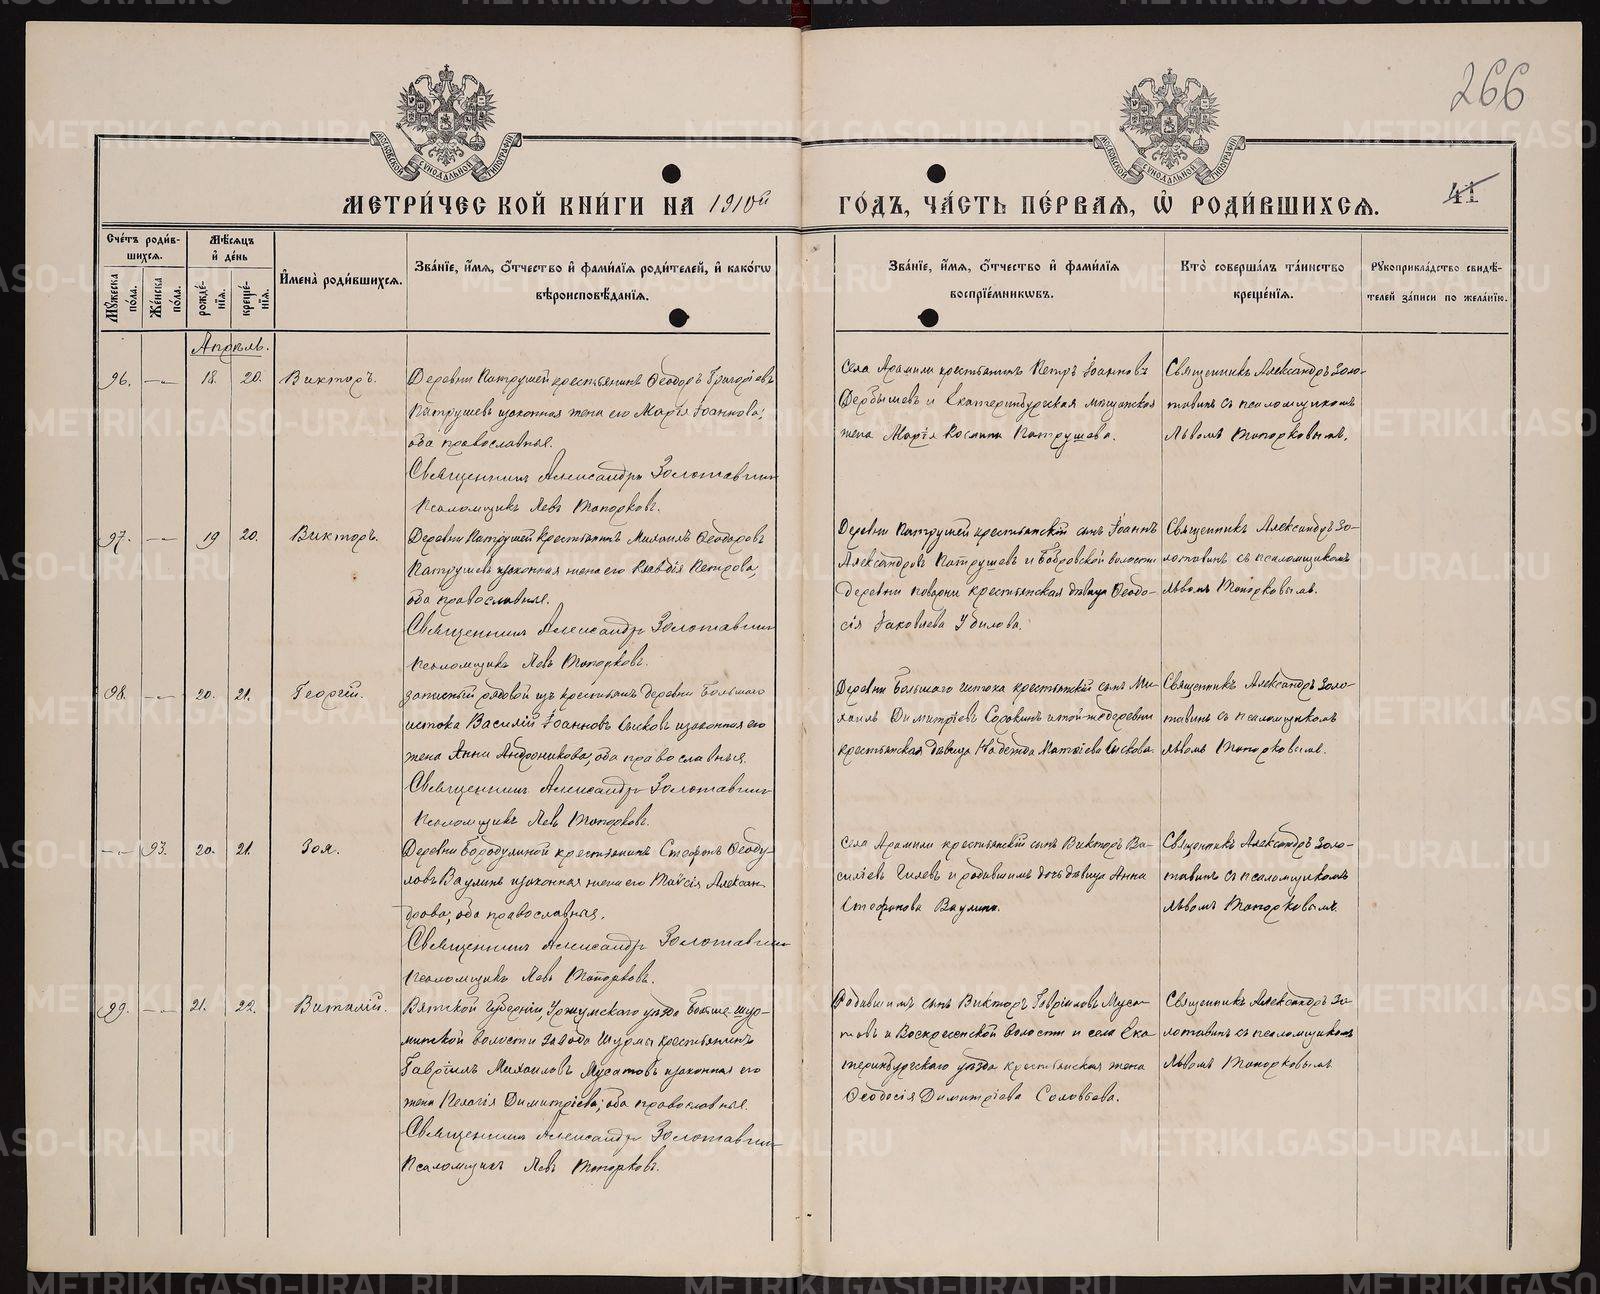 266
МЕТРИ́ЧЕСКОЙ КНИ́ГИ НА 1910й ГО́ДЪ, ЧА́СТЬ ПЕ́РВАѦ, Ѡ҆ РОДИ́ВШИХСѦ.
41
Сче́тъ роди́в-
шихсѧ.
Мꙋ́жеска по́ла.
Же́нска по́ла.
Мѣ́сѧцъ
и҆ де́нь
рожде́-
нїѧ.
креще́-
нїѧ.
И҆мена̀ роди́вшихсѧ.
Зва́нїе, и҆́мѧ, ѻ҆́тчество и҆ фами́лїѧ роди́телей, и҆ како́гѡ
вѣроисповѣ́данїѧ.
Зва́нїе, и҆́мѧ, ѻ҆́тчество и҆ фами́лїѧ
воспрїе́мниковъ.
Кто̀ соверша́лъ та́инство
креще́нїѧ.
Рꙋкоприкла́дство свидѣ́-
телей за́писи по жела́нїю.
Апрѣль.
96. —„— 18. 20. Викторъ.
Деревни Патрушей крестьянинъ Ѳеодоръ Григоріевъ
Патрушевъ и законная жена его Марія Іоаннова;
оба православные.
Священникъ Александръ Золотавинъ
Псаломщикъ Левъ Топорковъ.
Села Арамили крестьянинъ Петръ Іоанновъ
Дербышевъ и Екатеринбургская мѣщанская
жена Марія Космина Патрушева.
Священникъ Александръ Золо-
тавинъ съ псаломщикомъ
Львомъ Топорковымъ.
97. —„— 19 20. Викторъ.
Деревни Патрушей крестьянинъ Михаилъ Ѳеодоровъ
Патрушевъ и законная жена его Клавдія Петрова;
оба православные.
Священникъ Александръ Золотавинъ
Псаломщикъ Левъ Топорковъ.
Деревни Патрушей крестьянскій сынъ Іоаннъ
Александровъ Патрушевъ и Бобровской волости
деревни Поварни крестьянская дѣвица Ѳеодо-
сія Іаковлева Убилова.
Священникъ Александръ Зо-
лотавинъ съ псаломщикомъ
Львомъ Топорковымъ.
98. —„— 20. 21. Георгій.
Запасный рядовой изъ крестьянъ деревни Большаго
истока Василій Іоанновъ Сысковъ и законная его
жена Анна Андроникова; оба православные.
Священникъ Александръ Золотавинъ
Псаломщикъ Левъ Топорковъ.
Деревни Большаго истока крестьянскій сынъ Ми-
хаилъ Димитріевъ Сорокинъ и той-же деревни
крестьянская дѣвица Надежда Матѳіева Сыскова.
Священникъ Александръ Золо-
тавинъ съ псаломщикомъ
Львомъ Топорковымъ.
—„— 93. 20. 21. Зоя.
Деревни Бородулиной крестьянинъ Стефанъ Ѳеоду-
ловъ Ваулинъ и законная жена его Таисія Алексан-
дрова; оба православные.
Священникъ Александръ Золотавинъ
Псаломщикъ Левъ Топорковъ.
Села Арамили крестьянскій сынъ Викторъ Ва-
силіевъ Гилевъ и родившимъ дочь дѣвица Анна
Стефанова Ваулина.
Священникъ Александръ Золо-
тавинъ съ псаломщикомъ
Львомъ Топорковымъ.
99. —„— 21. 22. Виталій.
Вятской Губерніи, Уржумскаго уѣзда Больше-шур-
минской волости Завода Шурмы крестьянинъ
Гавріилъ Михаиловъ Мусатовъ и законная его
жена Пелагія Димитріева; оба православные.
Священникъ Александръ Золотавинъ
Псаломщикъ Левъ Топорковъ.
Родившимъ сынъ Викторъ Гавріиловъ Муса-
товъ и Воскресенской волости и села Ека-
теринбургскаго уѣзда крестьянская жена
Ѳеодосія Димитріева Соловьева.
Священникъ Александръ Зо-
лотавинъ съ псаломщикомъ
Львомъ Топорковымъ